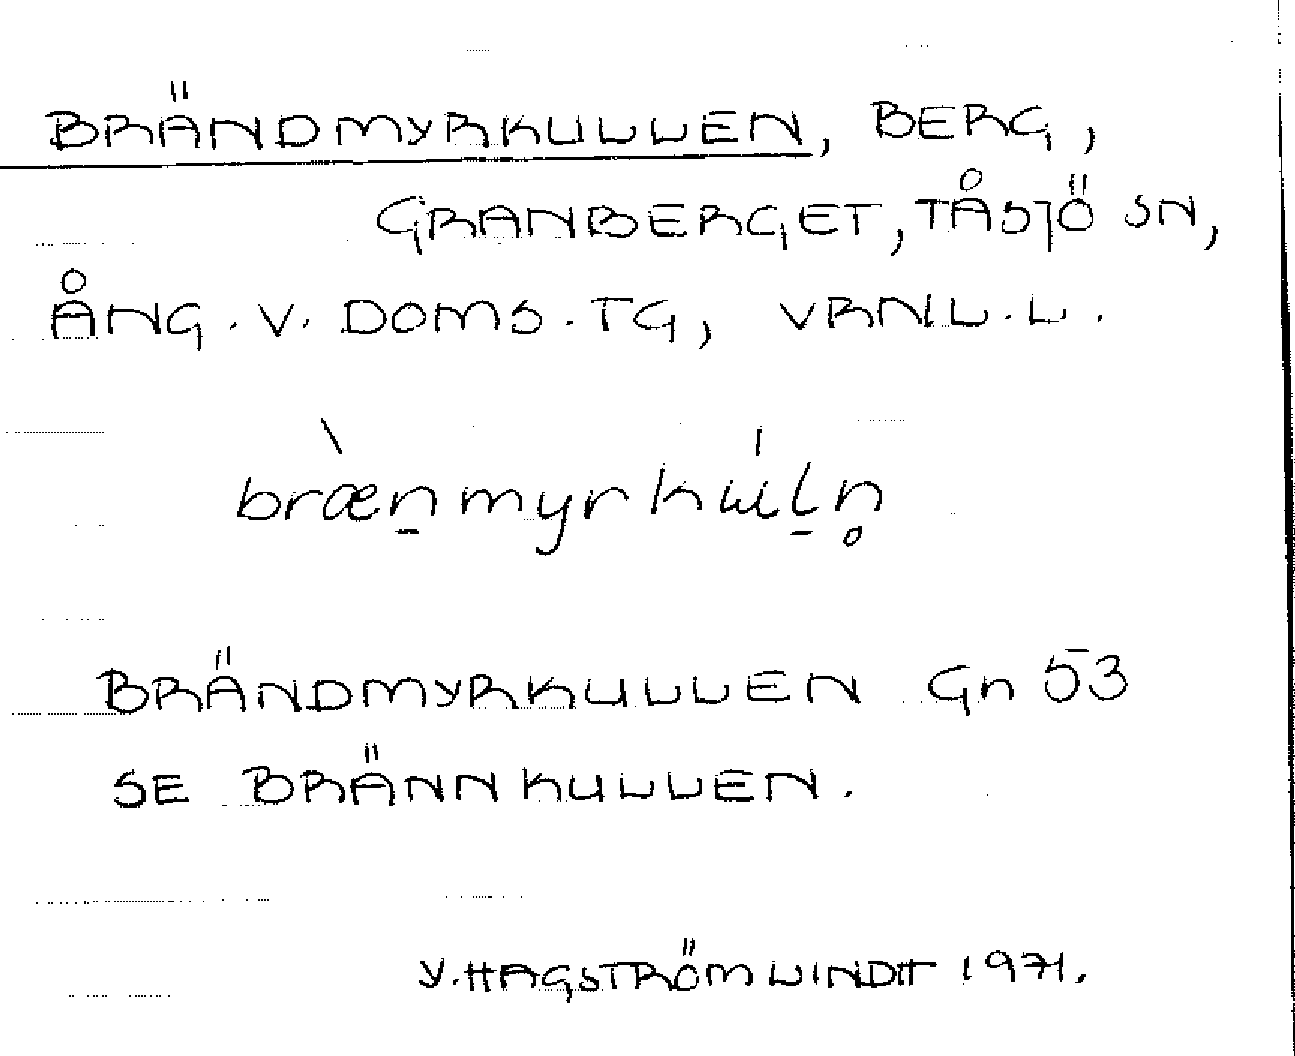 BRÄNDMYRKULLEN, BERG,
GRANBERGET, TÅSJÖ SN,
ÅNG. V. DOMS. TG, VRNL. L.
bræ̀n̠myrkúl̠n̥
BRÄNDMYRKULLEN Gn 53
SE BRÄNNKULLEN.
Y. HAGSTRÖM LINDIT 1971.